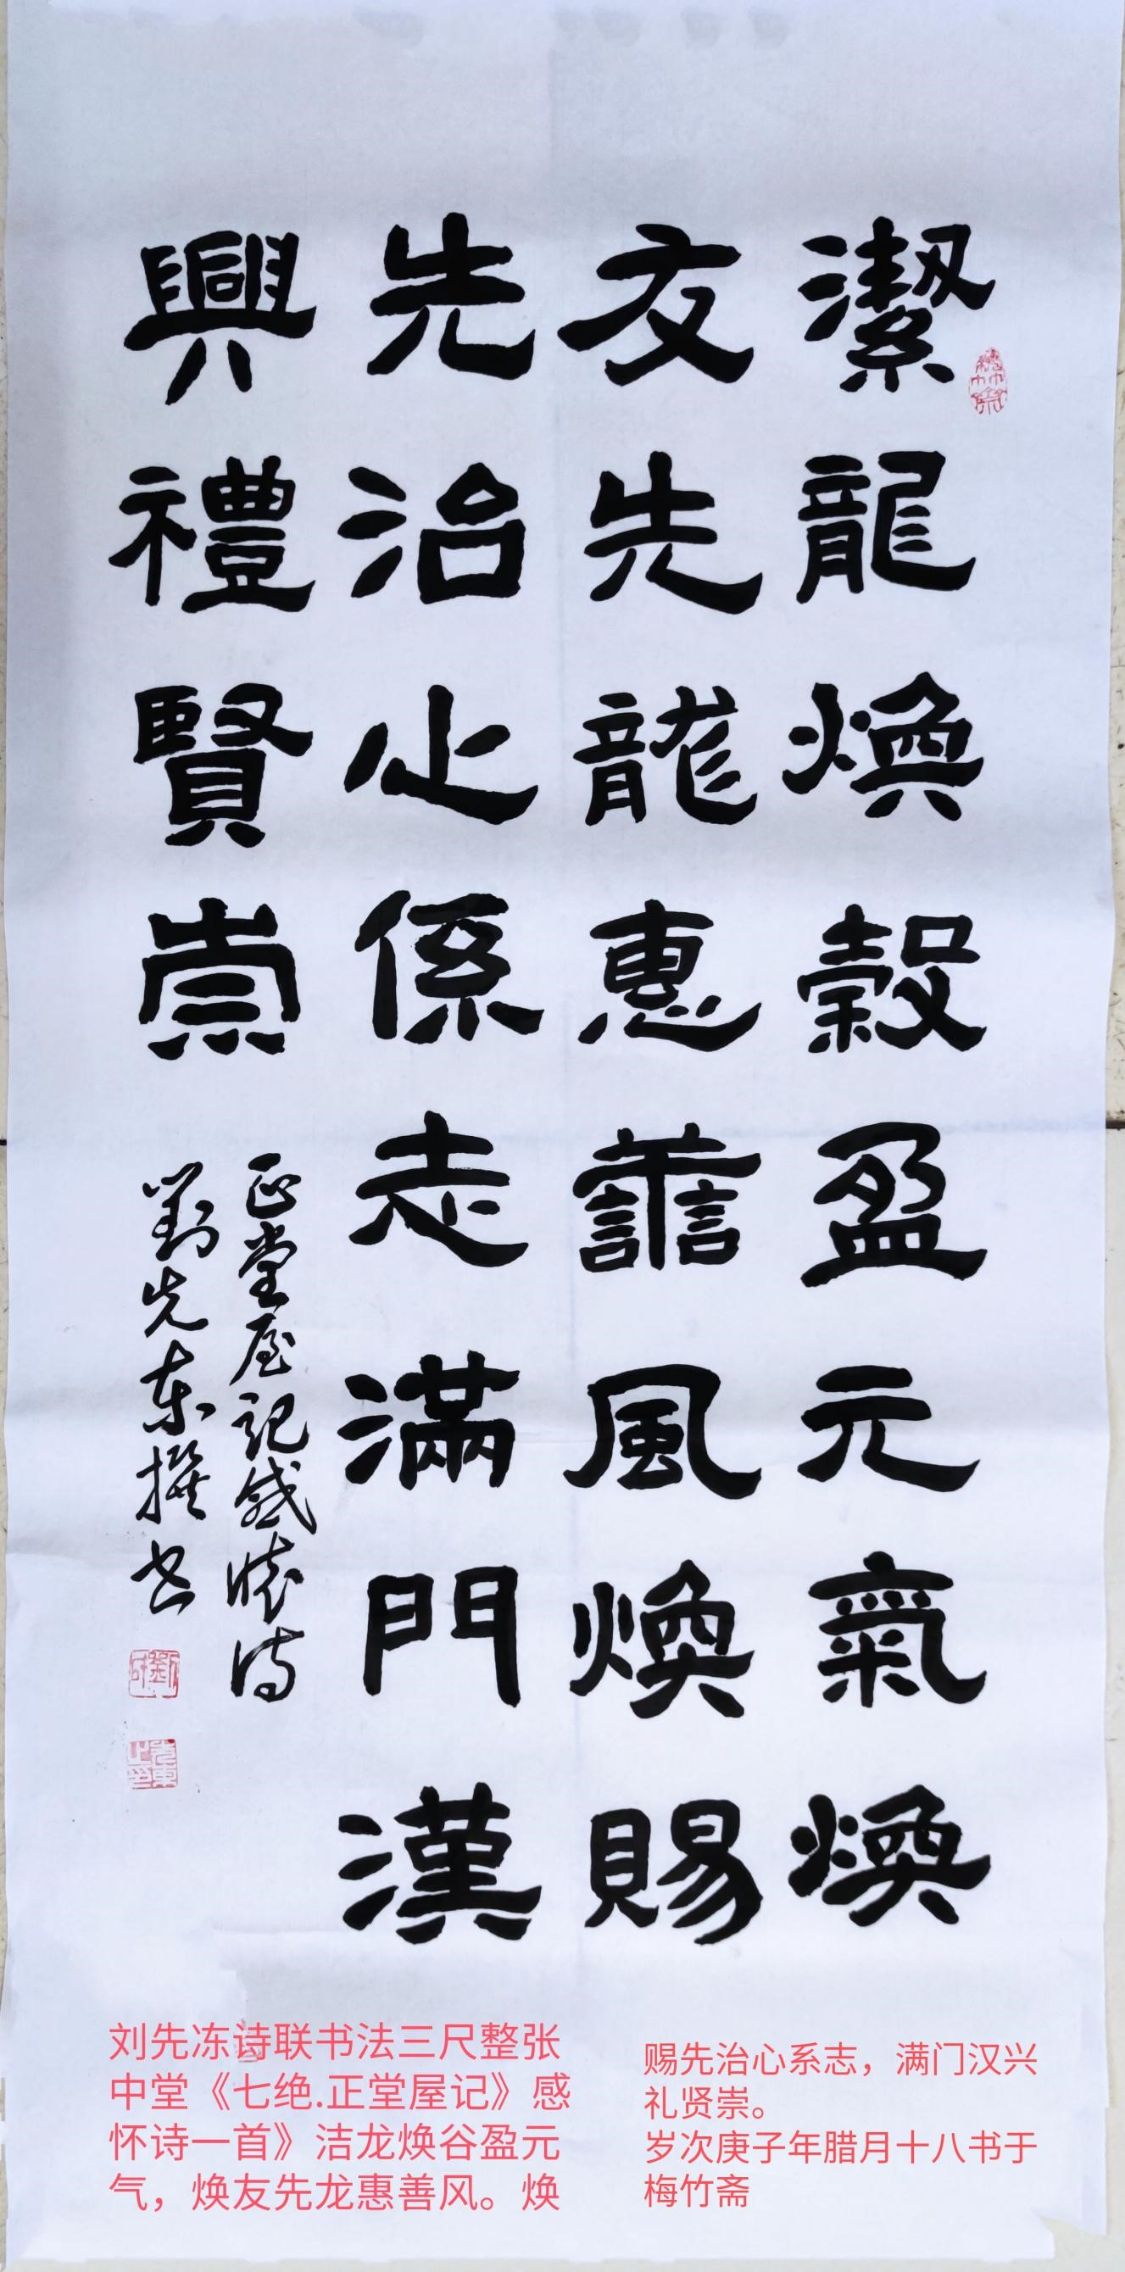 潔龍煥穀盈元氣煥
友先龍惠譱風煥賜
先治心係志滿門漢
興禮賢崇
正堂屋记感怀诗
劉先东撰书
刘先冻诗联书法三尺整张
中堂《七绝.正堂屋记》感
怀诗一首》洁龙焕谷盈元
气，焕友先龙惠善风。焕
赐先治心系志，满门汉兴
礼贤崇。
岁次庚子年腊月十八书于
梅竹斋